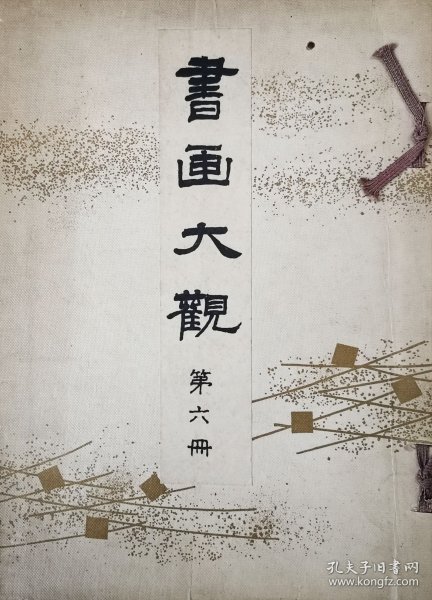 書画大觀
第六冊
孔夫子旧书网
www.kongfz.com